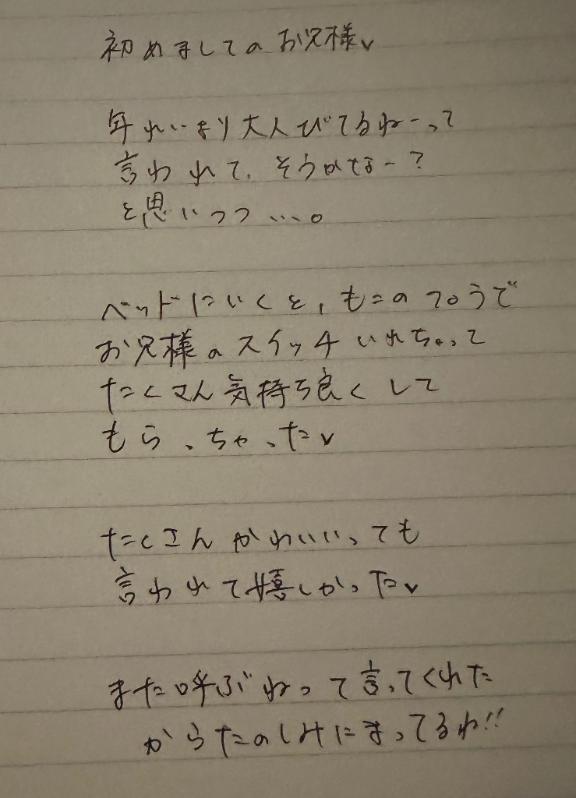 初めましてのお兄様✓
年れいより大人びてるねーって
言われて、そうかなー?
と思いつつ…。
ベッドにいくと、もこのプロうで
お兄様のスイッチいれちゃって
たくさん気持ち良くして
もらっちゃった✓
たくさんかわいいっても
言われて嬉しかった✓
また呼ぶねって言ってくれた
からたのしみにまってるね!!